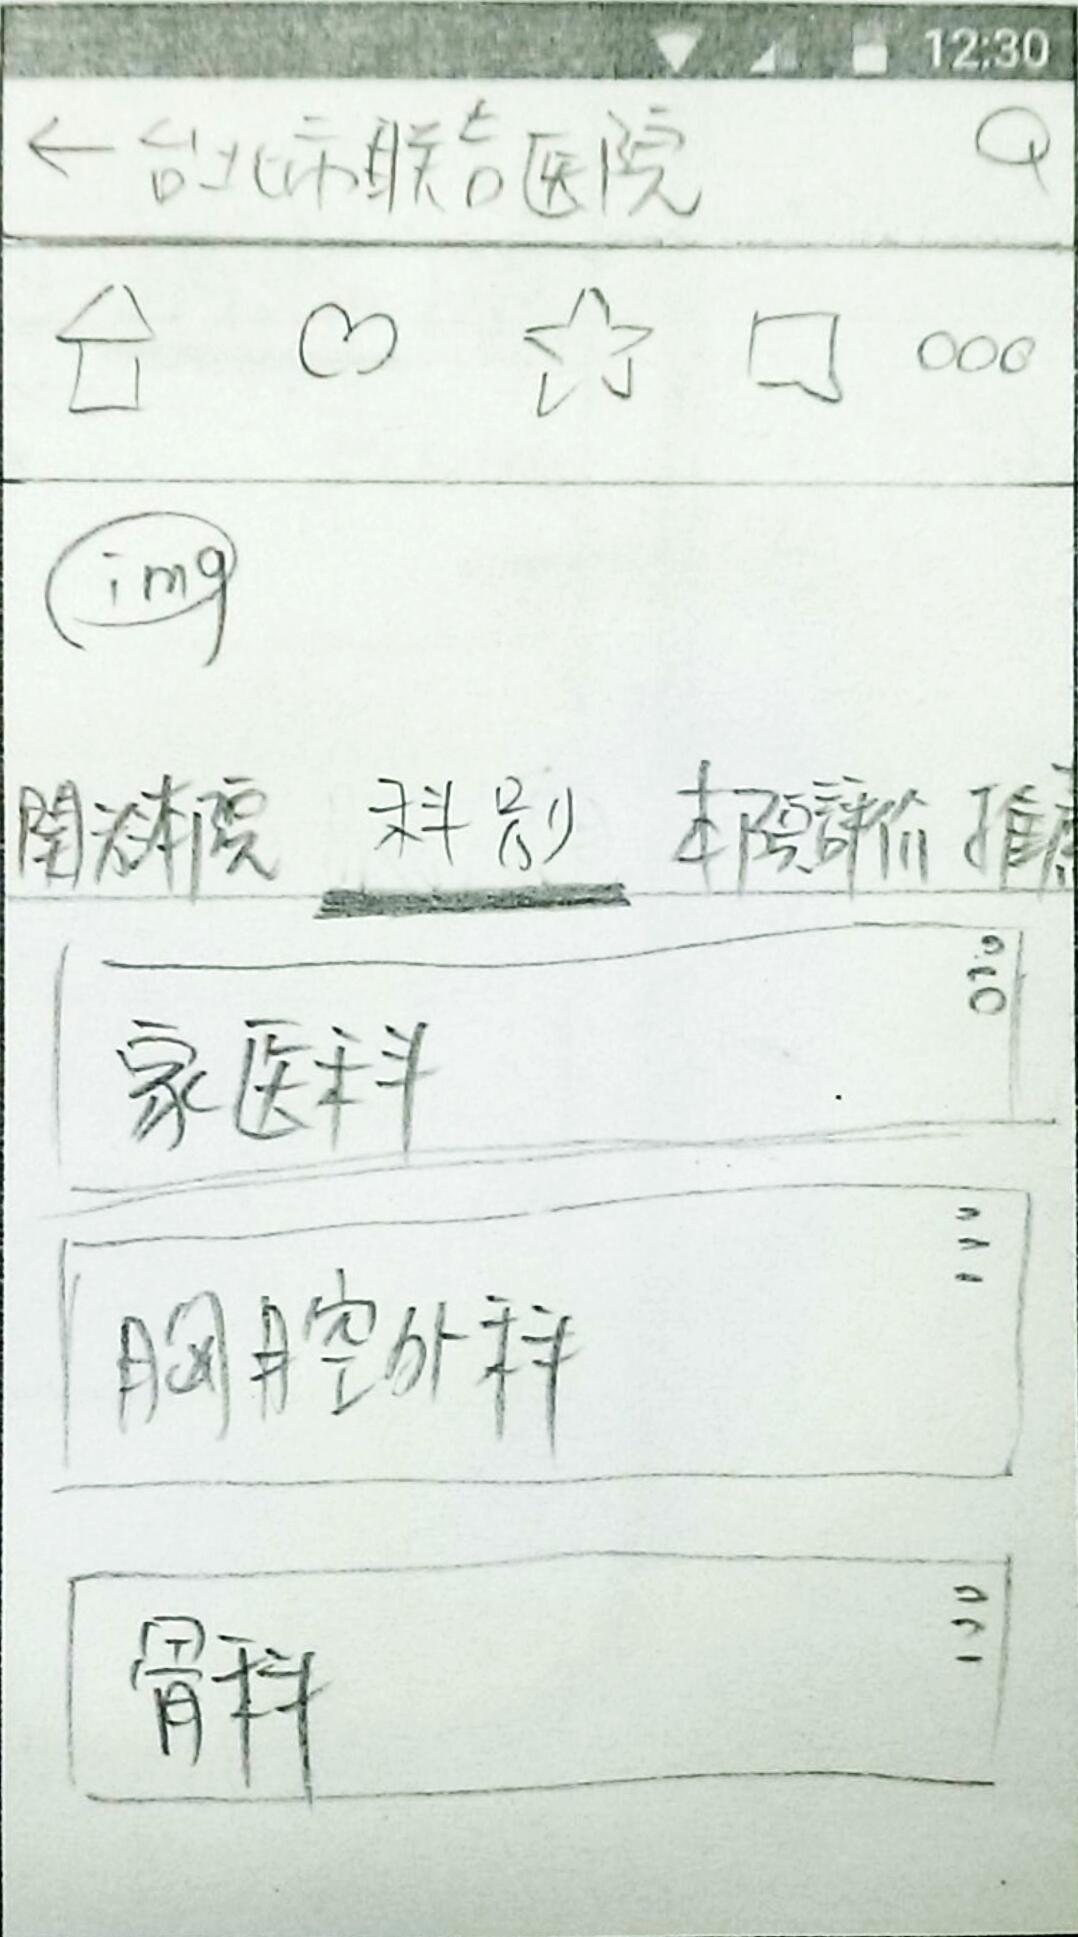 12:30
台北市联合医院
img
関於本院 科別 本院評价 推薦
家医科
胸腔外科
骨科